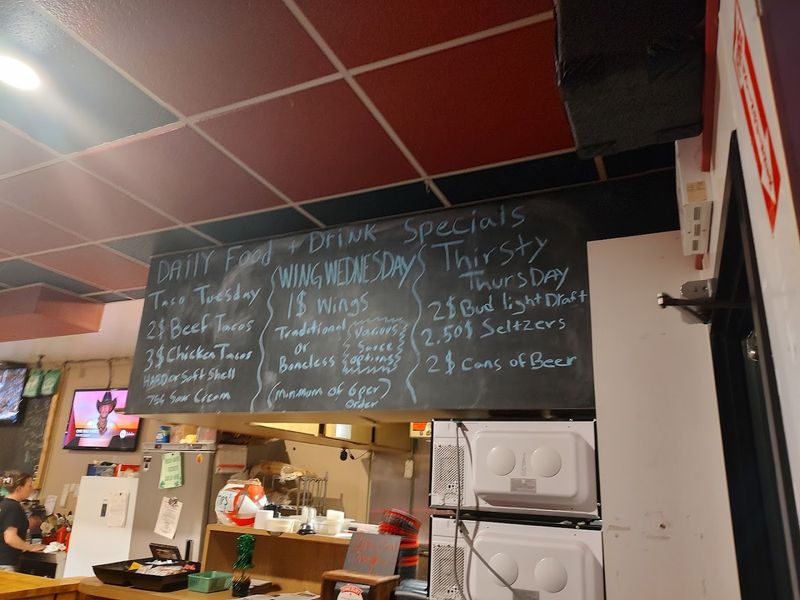 DAILY Food + DRINK Specials
Taco Tuesday
2$ Beef Tacos
3$ Chicken Tacos
HARD or Soft Shell
75¢ Sour Cream
WING WEDNESDAY
1$ Wings
Traditional
or
Boneless
Various
Sauce
options
(minimum of 6 per)
order
Thirsty
ThursDAY
2$ Bud light Draft
2.50$ Seltzers
2$ Cans of Beer